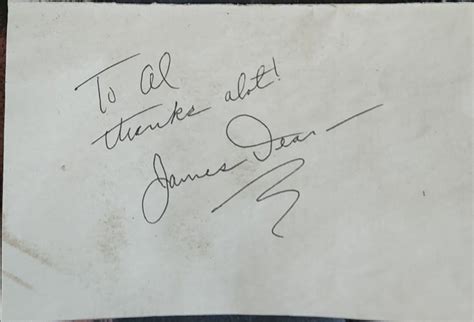 To Al
thanks alot!
James Dean